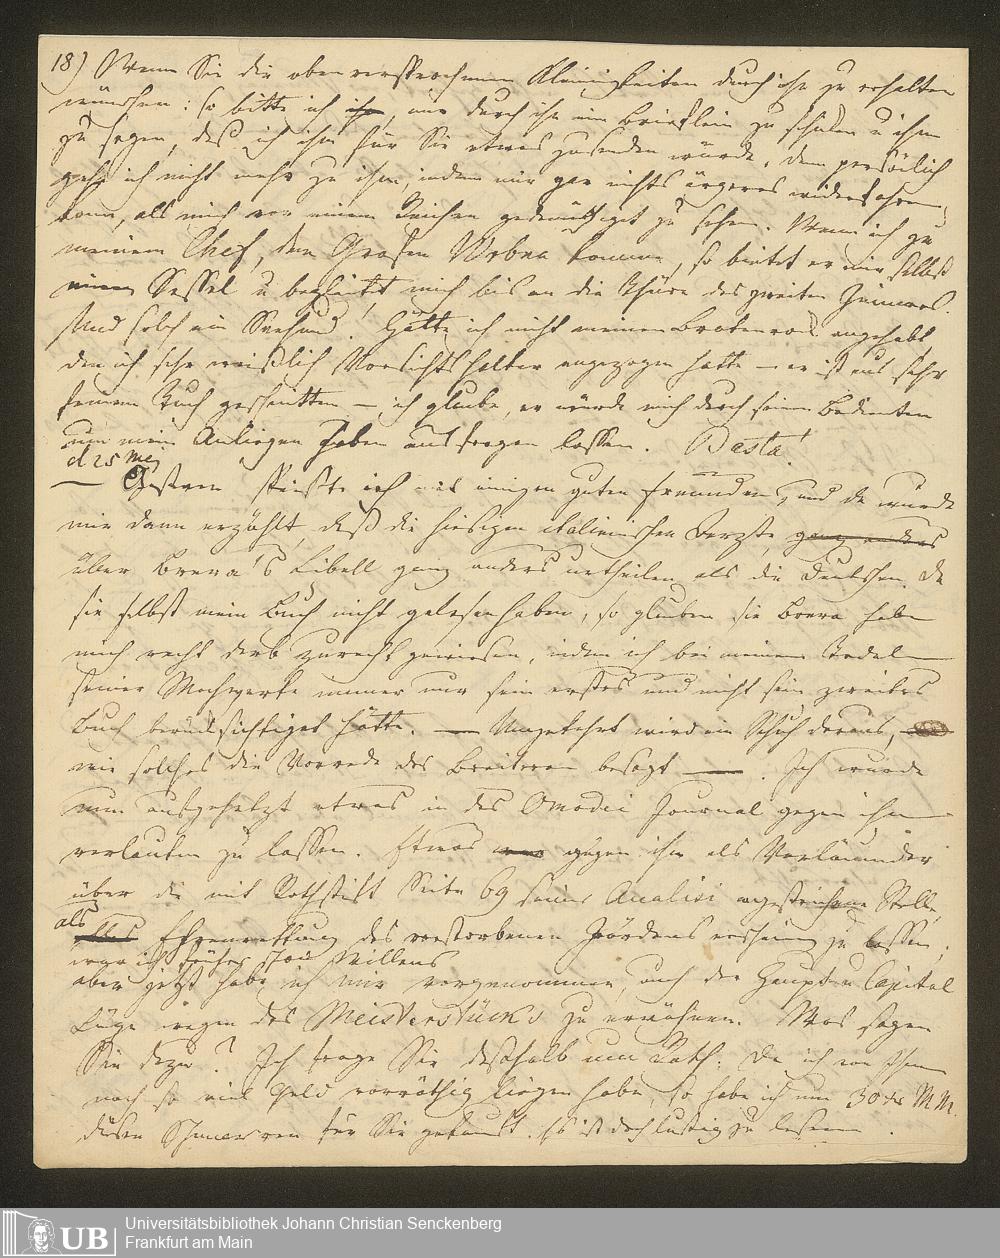 18) Wenn Sie die oben versprochenen Kleinigkeiten durch ihn zu erhalten
wünschen: so bitte ich ihn, nur durch ihn ein Brieflein zu schicken u ihm
zu sagen, daß ich ihm für Sie etwas zusenden würde, denn persönlich
gehe ich nicht mehr zu ihm, indem mir gar nichts ärgeres widerfahren
kann, als mich vor einem Reichen gedemüthiget zu sehen. Wenn ich zu
meinem Chef, dem Grafen Wrbna komme, so bietet er mir selbst
einen Sessel u begleitet mich bis an die Thüre des zweiten Zimmers.
Und solch ein Seehund. Hätte ich nicht meinen Bratenrock angehabt,
den ich sehr weislich Vorsichtshalber angezogen hatte – er ist aus sehr
feinem Tuch geschnitten –, ich glaube, er würde mich durch seinen Bedienten
um mein Anliegen haben ausfragen lassen. Basta!
d 25 Mej
Gestern speiste ich mit einigen guten Freunden, und da wurde
mir dann erzählt daß die hiesigen italienischen Aerzte, ganz anders
über Brera's Libell ganz anders urtheilen als die Deutschen. Da
sie selbst mein Buch nicht gelesen haben, so glauben sie Brera habe
mich recht derb zurecht gewiesen, indem ich bei meinem Tadel
seiner Machwerke immer nur sein erstes und nicht sein zweites
Buch berücksichtiget hätte. – Umgekehrt wird ein Schuh daraus,
wie solches die Vorrede des Breiteren besagt –. Ich wurde
nun aufgehetzt etwas in des Omodei Journal gegen ihn
verlauten zu lassen. Etwas gegen ihn als Verläumder
über die mit Rothstift Seite 69 seiner Analisi angestrichene Stelle,
als Ehrenrettung des verstorbenen Jördens erscheinen zu lassen,
war ich früher schon Willens
aber jetzt habe ich mir vorgenommen, auch der Haupt u Capital
Lüge wegen des Meisterstücks zu erwähnen. Was sagen
Sie dazu? Ich frage Sie deßhalb um Rath. Da ich von Ihnen
noch so viel Geld vorräthig liegen habe, so habe ich um 30 xr M M.
diesen Schmarren für Sie gekauft. Es ist doch lustig zu lesen.
Universitätsbibliothek Johann Christian Senckenberg
Frankfurt am Main
UB